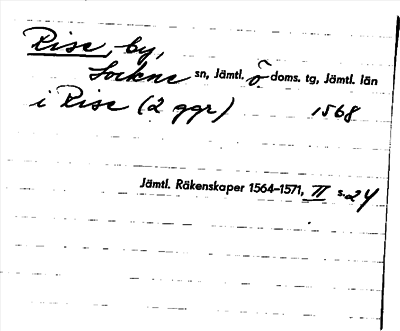 Rise, by,
Lockne sn, Jämtl. ö doms. tg, Jämtl. län
i Rise (2 ggr) 1568
Jämtl. Räkenskaper 1564–1571, II s. 24